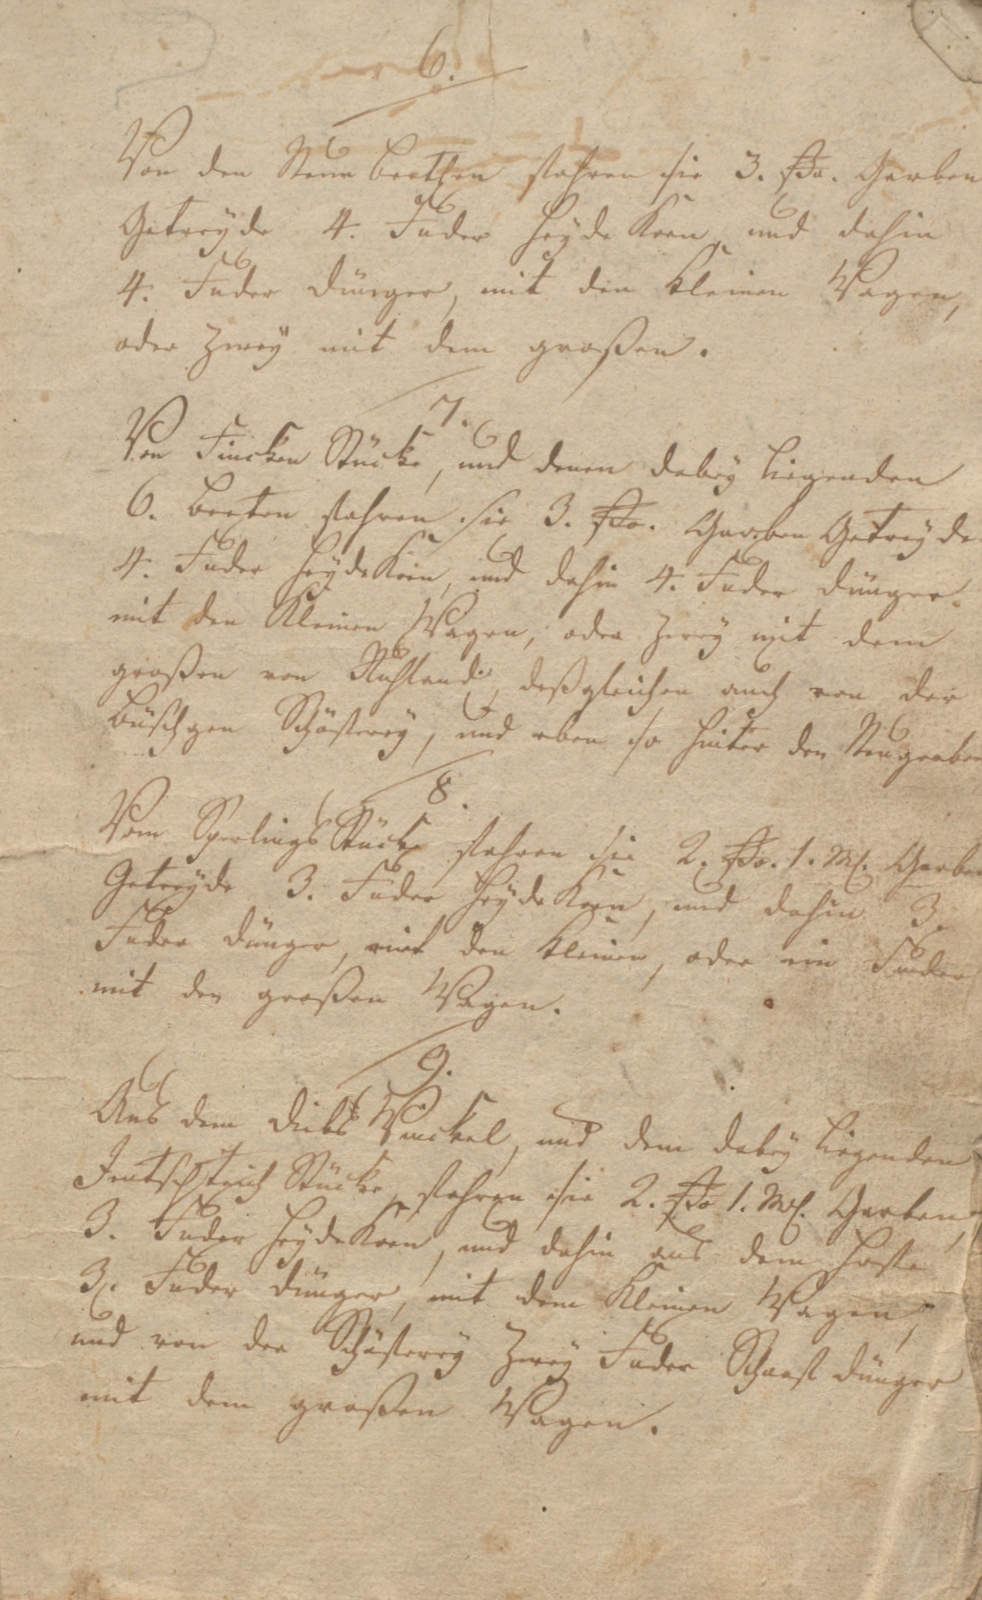 6.
Von den Neun beethen fahren sie 3. ßo. Garben
Getreyde 4. Fuder HeydeKorn, und dahin
4. Fuder Dünger, mit den Kleinen Wagen,
oder Zwey mit dem großen.
7.
Von Fincken Stücke, und denen dabey liegenden
6. beeten fahren sie 3. ßo. Garben Getreyde
4. Fuder HeydeKorn, und dahin 4. Fuder Dünger.
mit den Kleinen Wagen, oder Zwey mit dem
großen von Ruhland, deßgleichen auch von der
büschgen Schäferey, und eben so hinter den Neugraben
8.
Vom Sperlings Stücke fahren sie 2. ßo. 1. Ml. Garben
Getreyde 3. Fuder HeydeKorn, und dahin 3.
Fuder Dünger, mit den Kleinen, oder ein Fuder
mit den großen Wagen.
9.
Aus dem Diebs Winckel, und dem dabey liegenden
Stücke, fahren sie 2. ßo 1. Ml. Garben,
3. Fuder HeydeKorn, und dahin aus dem Hofe
3. Fuder Dünger, mit dem Kleinen Wagen,
und von der Schäferey Zwey Fuder Schaaf Dünger
mit dem großen Wagen.